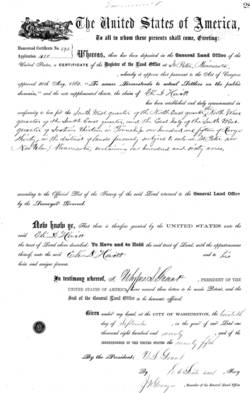 The United States of America,
To all to whom these presents shall come, Greeting:
Homestead Certificate No.
Application
Whereas, there has been deposited in the General Land Office of the
United States, a CERTIFICATE of the Register of the Land Office at St. Peter, Minnesota,
whereby it appears that pursuant to the Act of Congress
approved 20th May, 1862, "To secure Homesteads to actual Settlers on the public
domain," and the acts supplemental thereto, the claim of
has been established and duly consummated in
conformity to law for the South West quarter of the North East quarter, the North West
quarter of the South East quarter, and the East half of the South West
quarter of Section thirteen in Township one hundred and of Range
in the district of lands subject to sale at St. Peter
Minnesota, containing one hundred and sixty acres
according to the Official Plat of the Survey of the said Land returned to the General Land Office
by the Surveyor General.
Now know ye, That there is therefore granted by the UNITED STATES unto the
said
the tract of Land above described. To Have and to Hold the said tract of Land, with the appurtenances
thereof, unto the said and to his
heirs and assigns forever.
In testimony whereof, I, Ulysses S. Grant, PRESIDENT OF THE
UNITED STATES OF AMERICA, have caused these letters to be made Patent, and the
Seal of the General Land Office to be hereunto affixed.
Given under my hand, at the CITY OF WASHINGTON, the
day of September, in the year of our Lord one
thousand eight hundred and seventy, and of the
INDEPENDENCE OF THE UNITED STATES the ninety fifth
By the President: U. S. Grant
By Sec'y.
Recorder of the General Land Office.